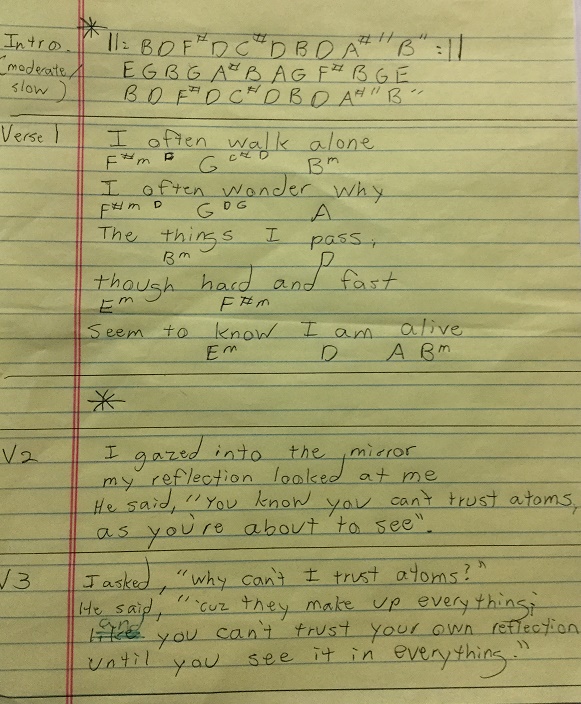 Intro. * ||: B D F# D C# D B D A# "B" :||
(moderate/ E G B G A# B A G F# B G E
slow) B D F# D C# D B D A# "B"
Verse 1 I often walk alone
F#m D G C# D Bm
I often wonder why
F#m D G D G A
The things I pass,
Bm D
though hard and fast
Em F#m
Seem to know I am alive
Em D A Bm
*
V2 I gazed into the mirror
my reflection looked at me
He said, "You know you can't trust atoms,
as you're about to see".
V3 I asked, "why can't I trust atoms?"
He said, "'cuz they make up everything;
and
like you can't trust your own reflection
until you see it in everything."